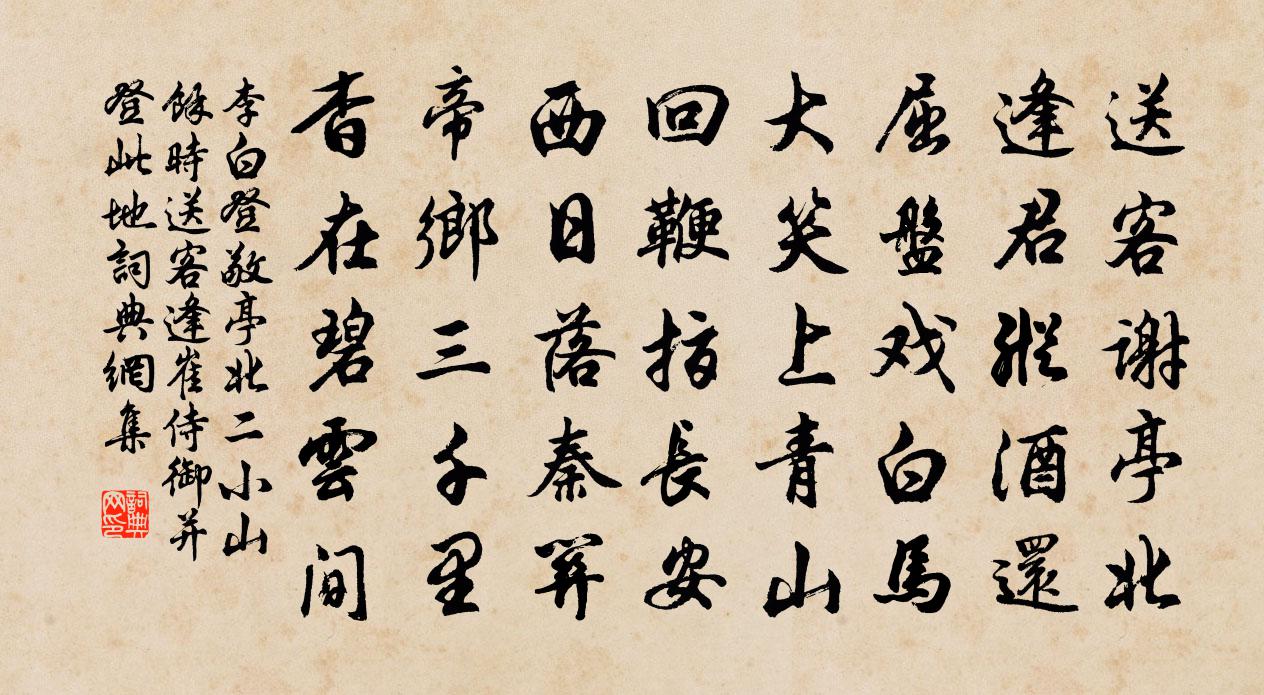 送客謝亭北
逢君縱酒還
屈盤戏白馬
大笑上青山
回鞭指長安
西日落秦關
帝鄉三千里
杳在碧雲間
李白登敬亭北二小山
餘時送客逢崔侍御并
登此地詞典網集
詞典网印